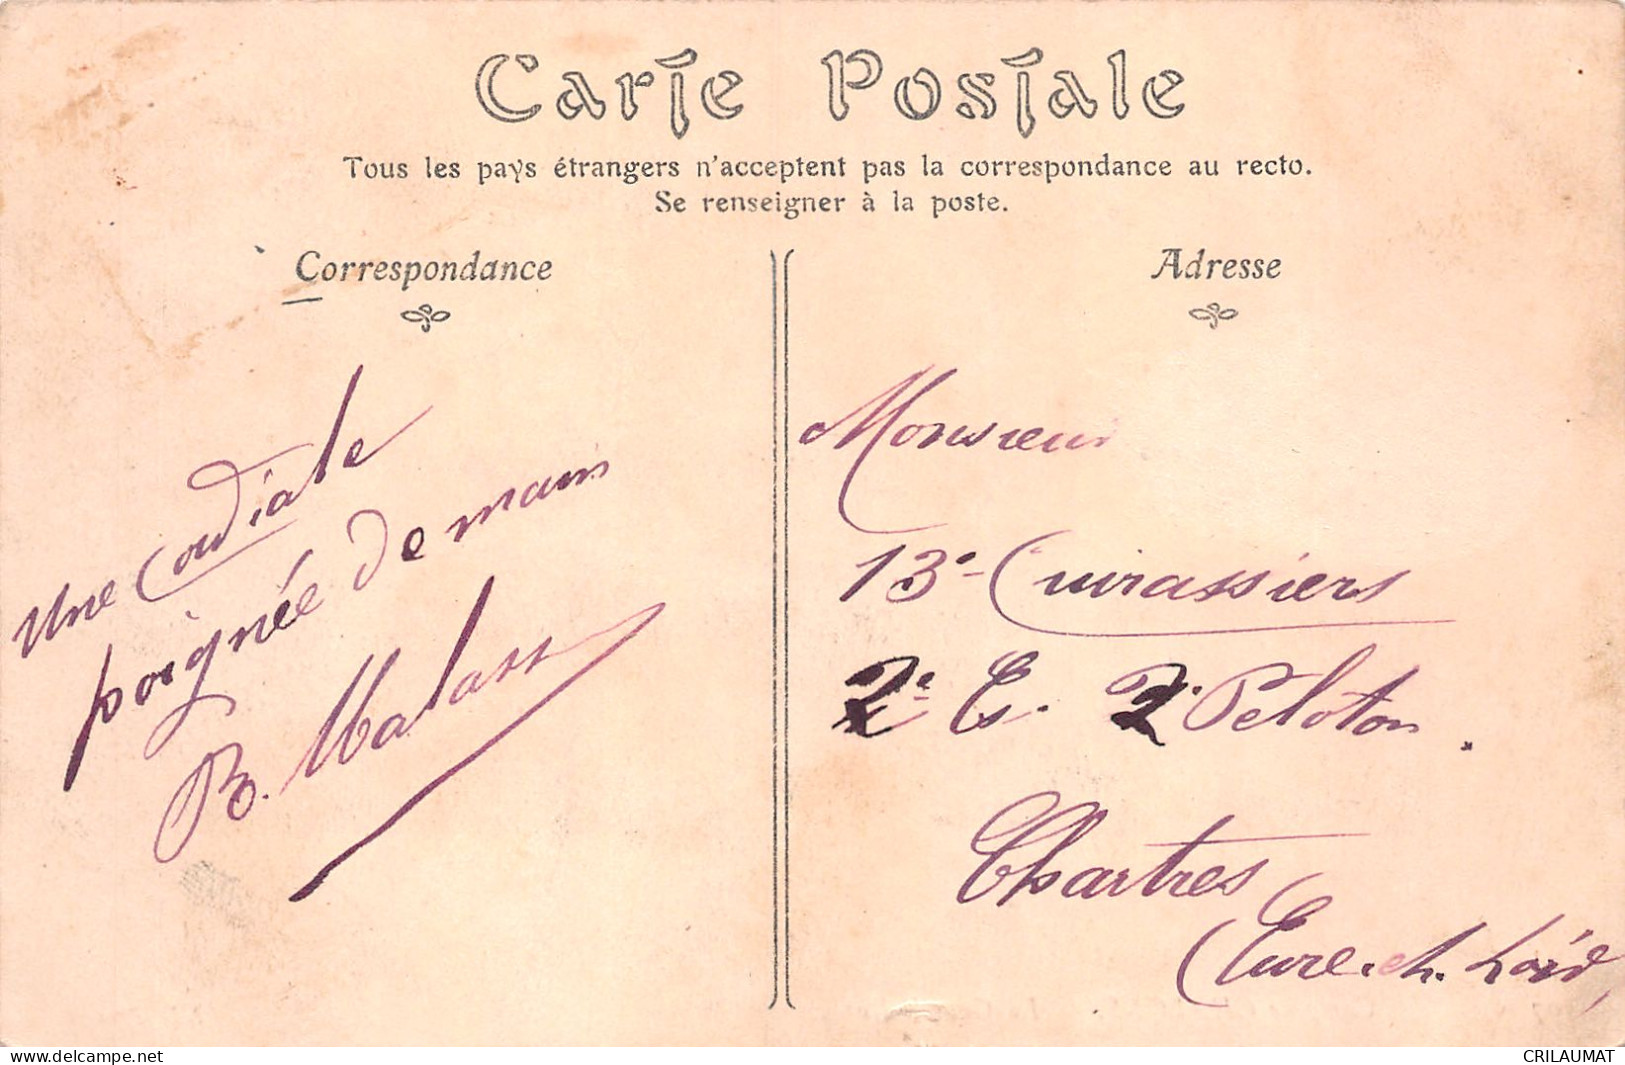 Carte Postale
Tous les pays étrangers n'acceptent pas la correspondance au recto.
Se renseigner à la poste.
Correspondance
Adresse
Une Cordiale
poignée de main
B. Malass
Monsieur
13e Cuirassiers
2e Es. 2e Peloton.
Chartres
Eure. et. Loir
www.delcampe.net
CRILAUMAT